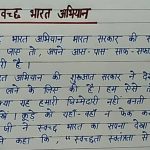 स्वच्छ भारत अभियान
भारत अभियान भारत सरकार की
पास तो, अपने आस-पास साफ-सफा
री है।
त अभियान की शुरुआत सरकार ने दे
जाने के लिस की है। हम ऐसे
क्या यह हमारी जिम्मेदारी नहीं बनती
ख। कूड़े को यहाँ-वहाँ न फेंक कर
जी ने स्वच्छ भारत का सपना देखा
ने कहा कि, "स्वच्छता स्वतंत्रता से